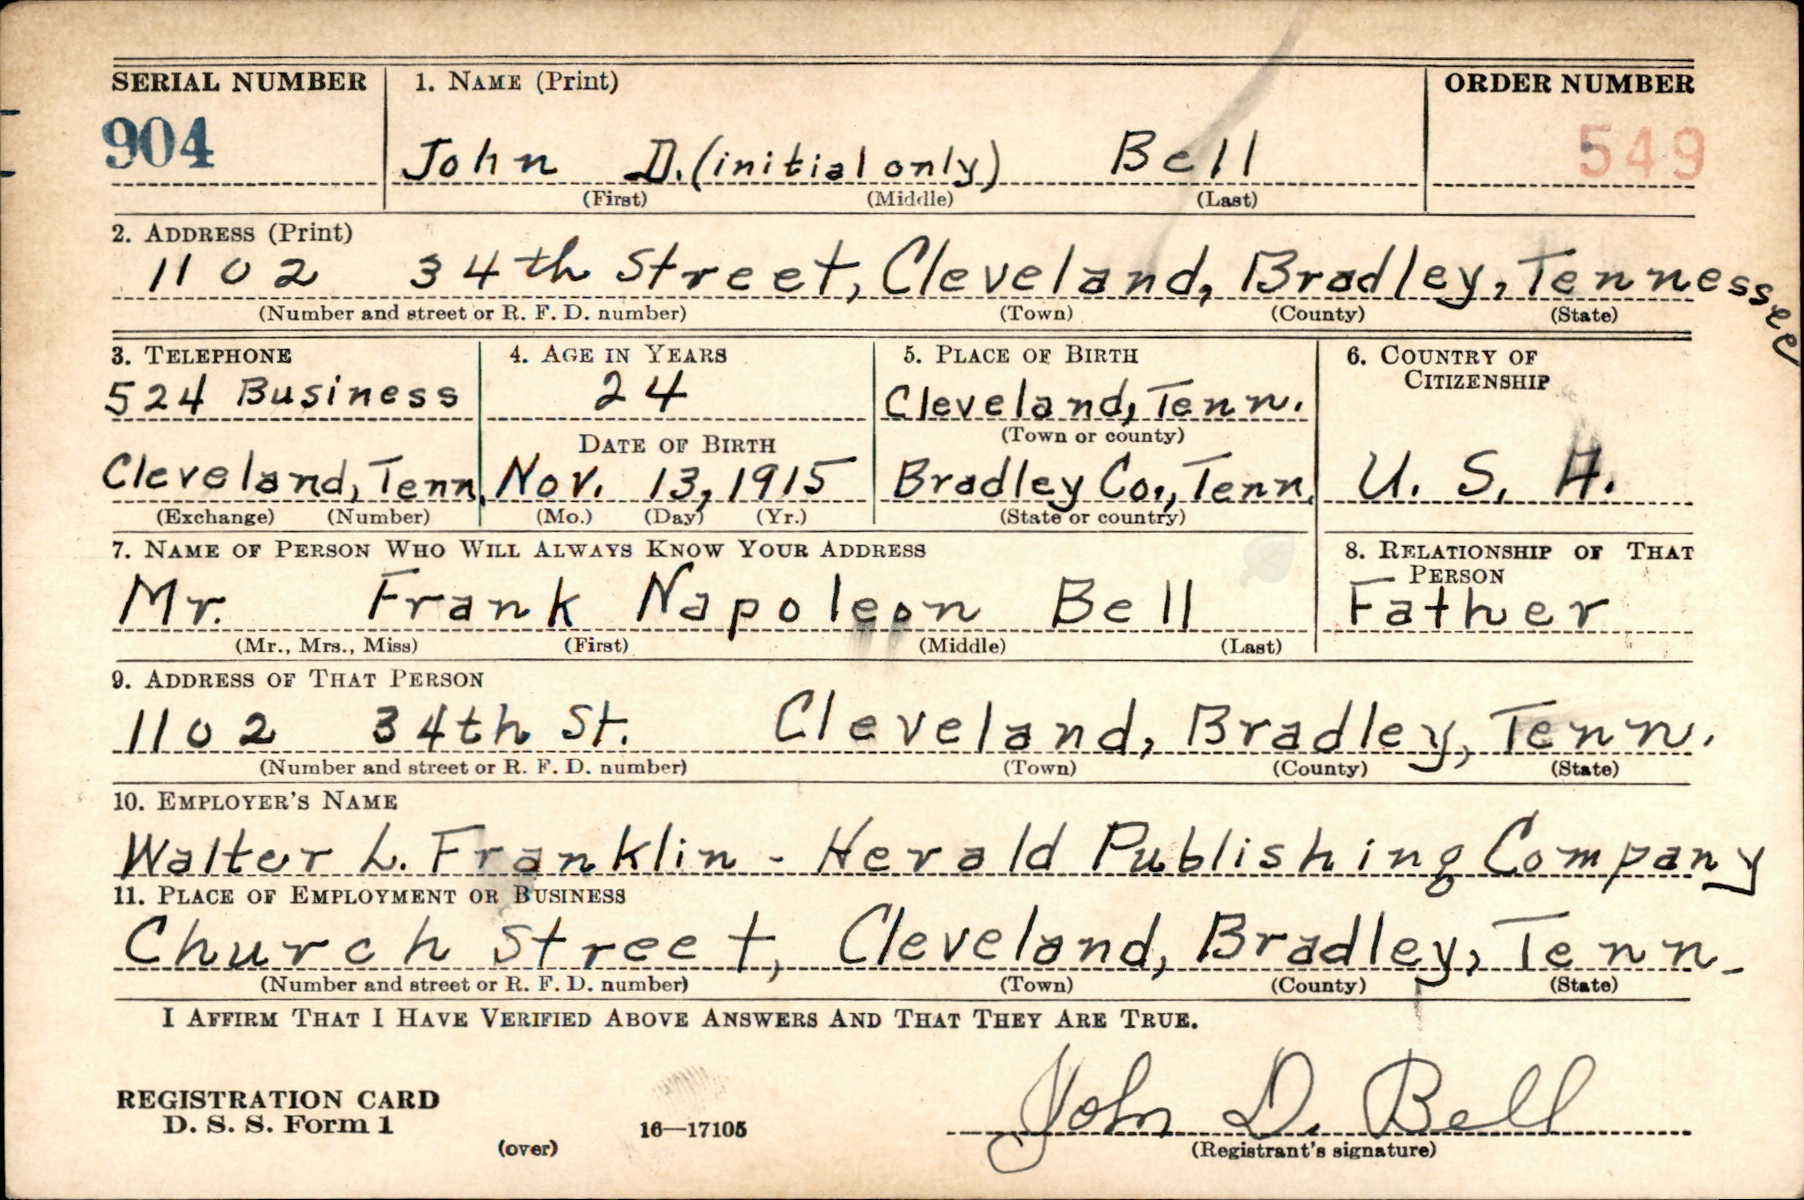 SERIAL NUMBER
904
1. NAME (Print)
John D. (initial only) Bell
(First) (Middle) (Last)
ORDER NUMBER
549
2. ADDRESS (Print)
1102 34th Street, Cleveland, Bradley, Tennessee
(Number and street or R. F. D. number) (Town) (County) (State)
3. TELEPHONE
524 Business
Cleveland, Tenn.
(Exchange) (Number)
4. AGE IN YEARS
24
DATE OF BIRTH
Nov. 13, 1915
(Mo.) (Day) (Yr.)
5. PLACE OF BIRTH
Cleveland, Tenn.
(Town or county)
Bradley Co., Tenn.
(State or country)
6. COUNTRY OF
CITIZENSHIP
U. S. A.
7. NAME OF PERSON WHO WILL ALWAYS KNOW YOUR ADDRESS
Mr. Frank Napoleon Bell
(Mr., Mrs., Miss) (First) (Middle) (Last)
8. RELATIONSHIP OF THAT
PERSON
Father
9. ADDRESS OF THAT PERSON
1102 34th St. Cleveland, Bradley, Tenn.
(Number and street or R. F. D. number) (Town) (County) (State)
10. EMPLOYER'S NAME
Walter L. Franklin - Herald Publishing Company
11. PLACE OF EMPLOYMENT OR BUSINESS
Church Street, Cleveland, Bradley, Tenn.
(Number and street or R. F. D. number) (Town) (County) (State)
I AFFIRM THAT I HAVE VERIFIED ABOVE ANSWERS AND THAT THEY ARE TRUE.
REGISTRATION CARD
D. S. S. Form 1
(over)
16—17105
John D. Bell
(Registrant's signature)